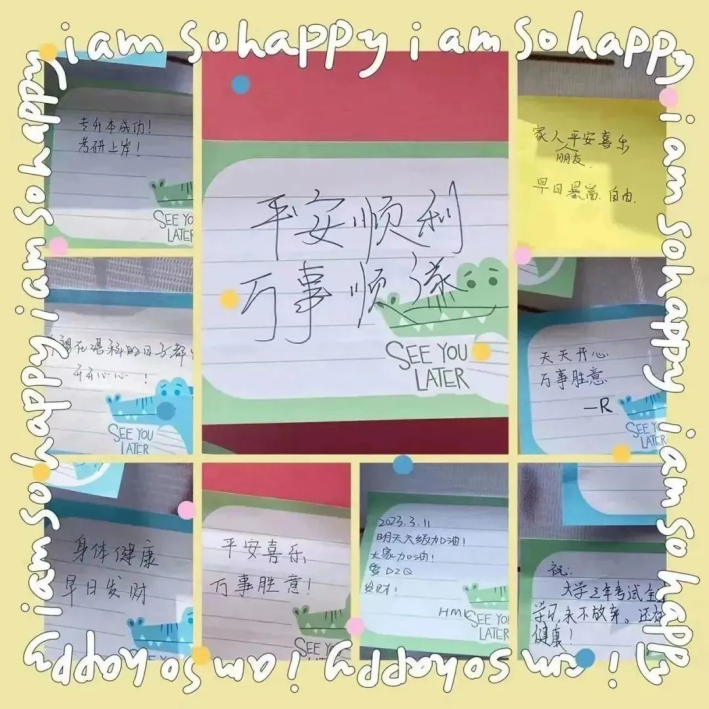 i am so happy i am so happy
专升本成功!
考研上岸!
SEE YOU
LATER
平安顺利
万事顺遂
SEE YOU
LATER
家人平安喜乐
朋友
早日暴富 自由.
开开心心!
SEE YOU
LATER
天天开心
万事胜意
—R
SEE YO
LATER
身体健康
早日发财
SEE YOU
平安喜乐
万事胜意!
SEE YO
2023.3.11
明天六级加油!
大家加油!
HMK
SEE YOU
LATER
祝:
大学三年考试全
学习永不放弃。还有
健康!
SEE YOU
i am so happy i am so happy
i am so happy i am so happy
i am so happy i am so happy